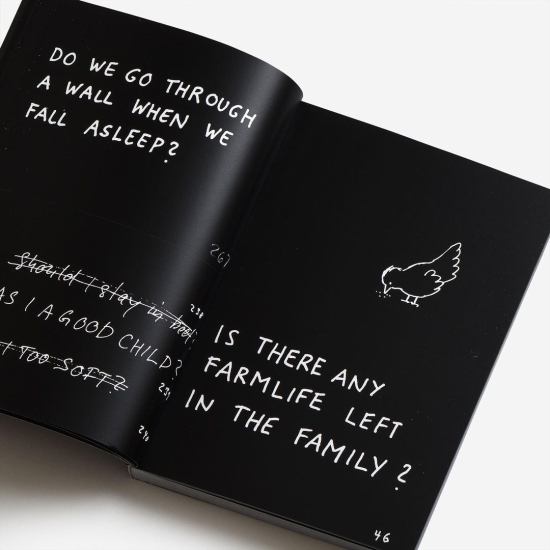 DO WE GO THROUGH
A WALL WHEN WE
FALL ASLEEP?
261
Should I stay in bed?
238
AS I A GOOD CHILD?
239
I TOO SOFT?
240
IS THERE ANY
FARMLIFE LEFT
IN THE FAMILY?
46